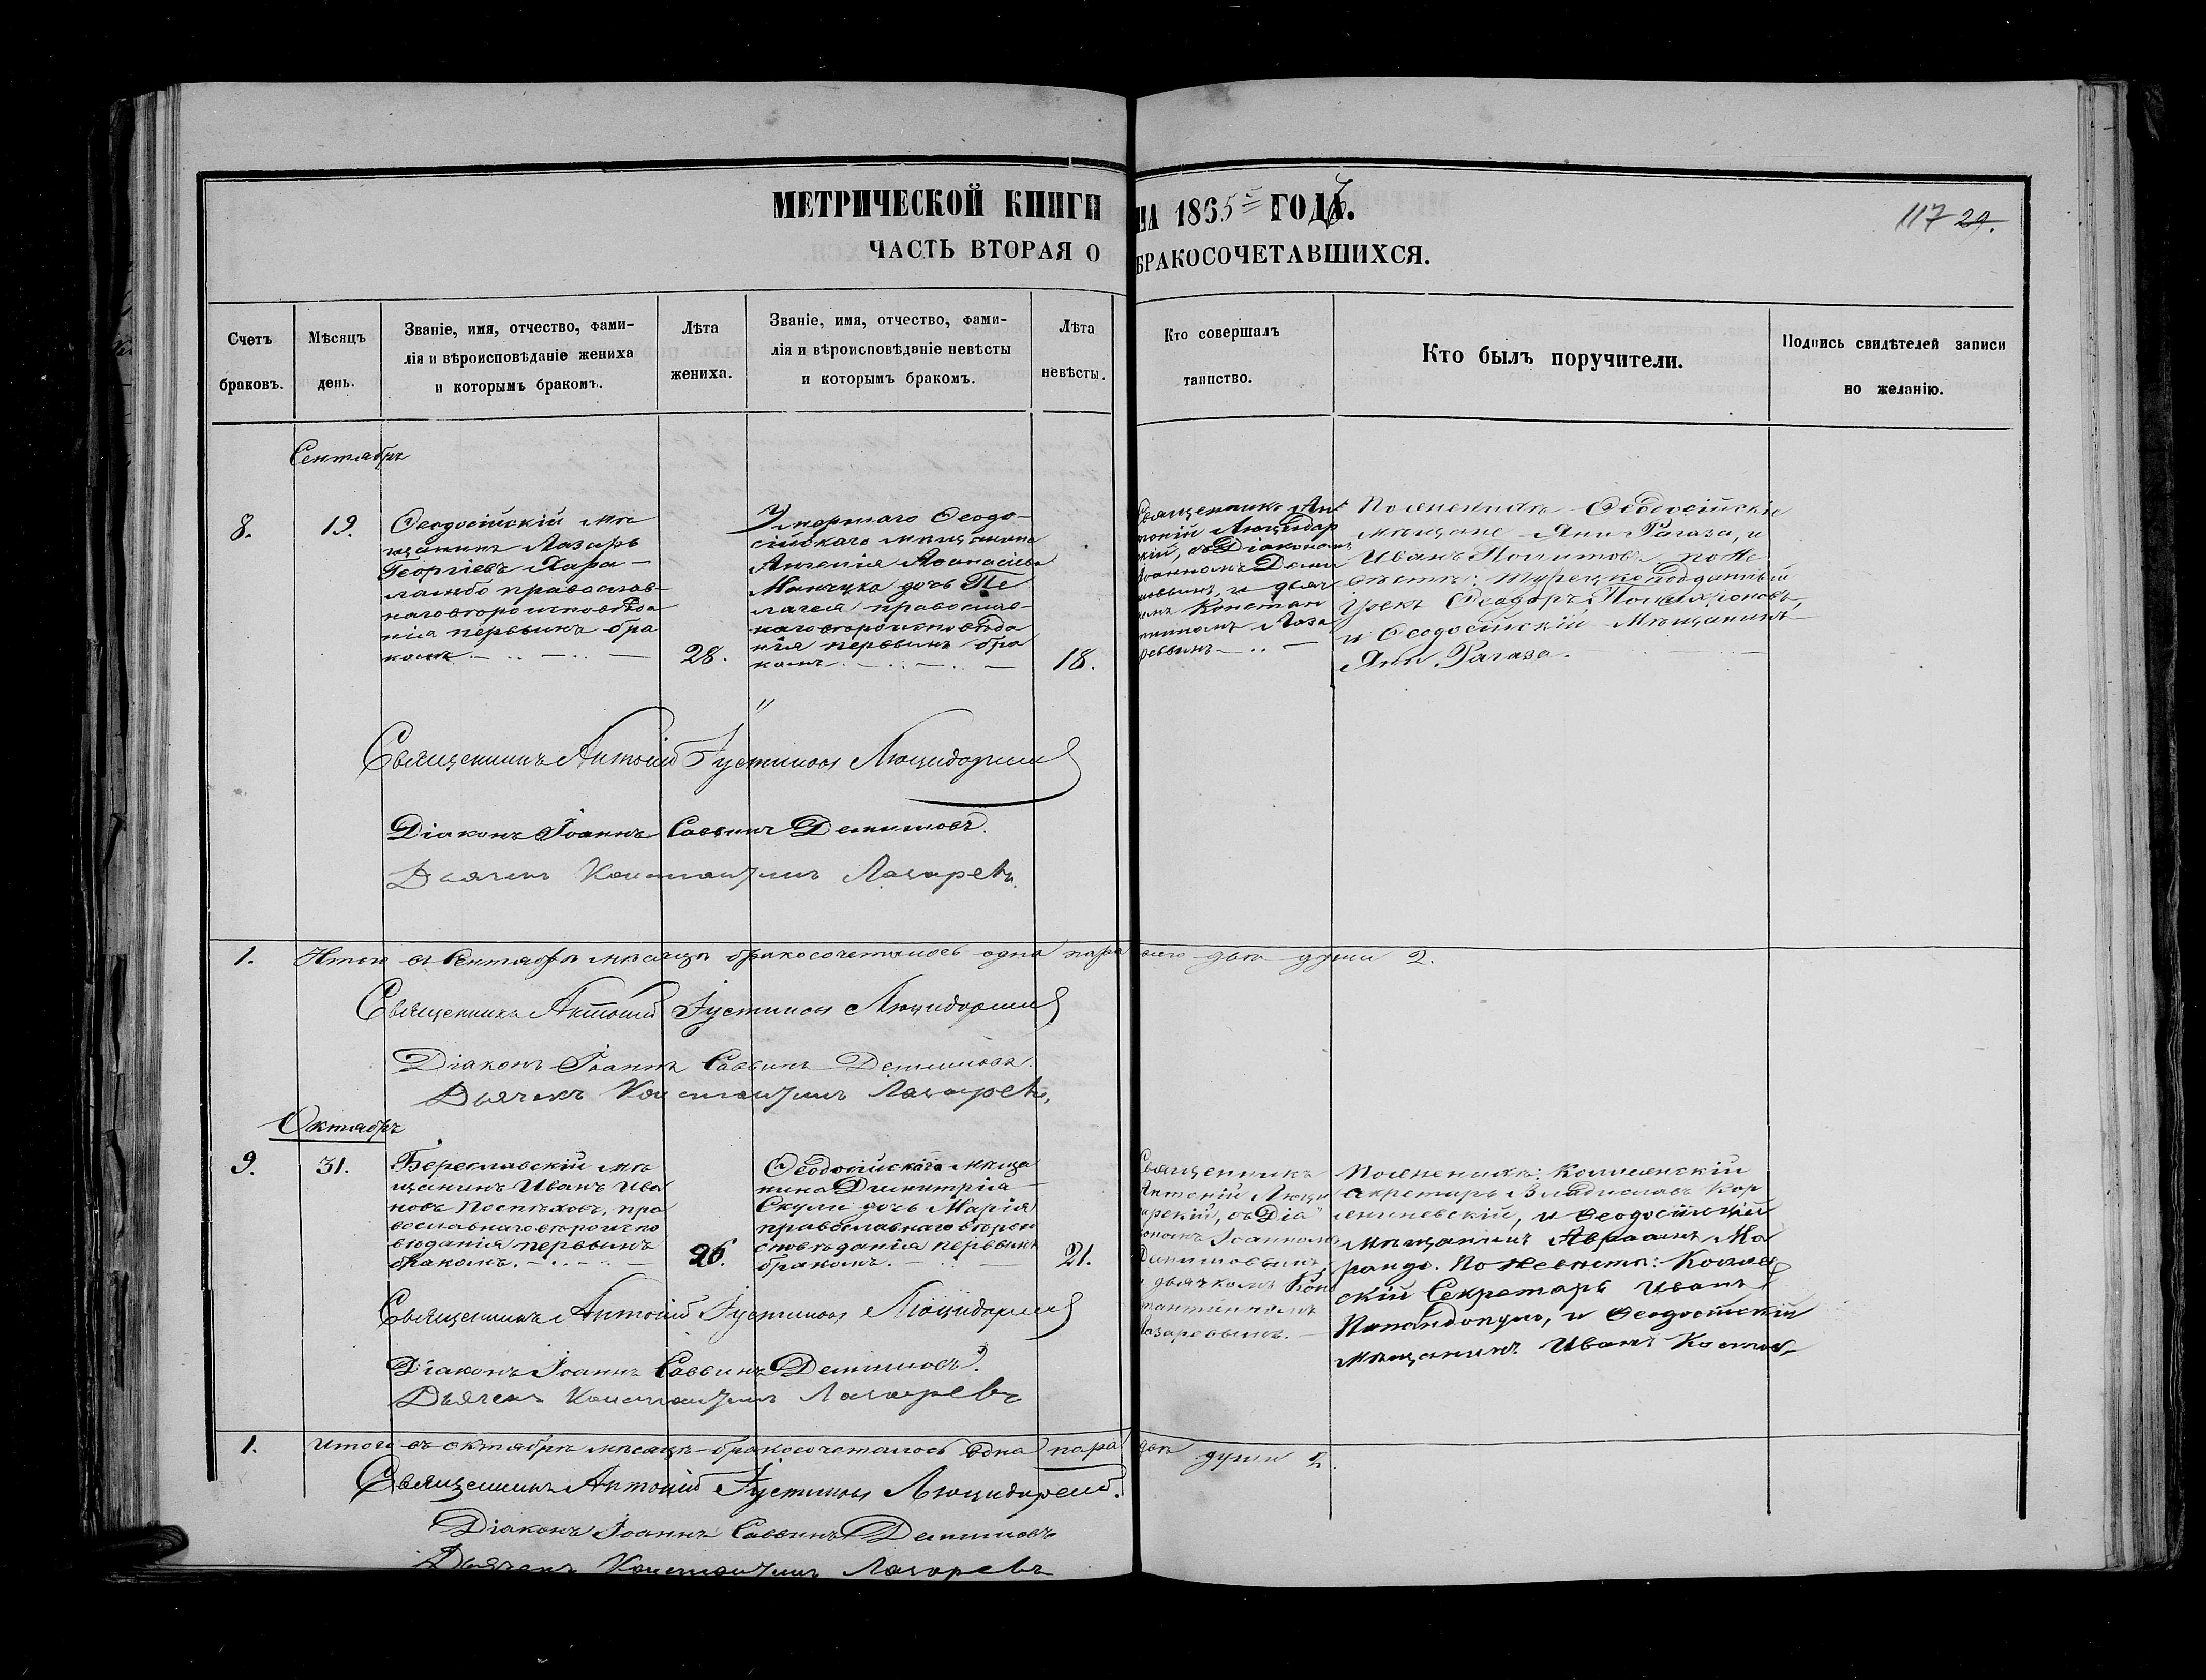 МЕТРИЧЕСКОЙ КНИГИ НА 1865 ГОДЪ.
117 29.
ЧАСТЬ ВТОРАЯ О БРАКОСОЧЕТАВШИХСЯ.
Счетъ браковъ.
Мѣсяцъ день.
Званіе, имя, отчество, фами-
лія и вѣроисповѣданіе жениха
и которымъ бракомъ.
Лѣта жениха.
Званіе, имя, отчество, фами-
лія и вѣроисповѣданіе невѣсты
и которымъ бракомъ.
Лѣта невѣсты.
Кто совершалъ
таинство.
Кто былъ поручители.
Подпись свидѣтелей записи
по желанію.
Сентябрь
8.
19.
Ѳеодосійскій мѣ
щанинъ Лазарь
Георгіевъ Хара-
ламбо православ-
наго вѣроисповѣда
нія первымъ бра
комъ.
28.
Умершаго Ѳеодо-
сійскаго мѣщанина
Аѳанасіева
дочь Пе
лагея православ-
наго вѣроисповѣда
нія первымъ бра
комъ.
18.
Священникъ Ан
тоній Люцидар
скій, съ Діакономъ
Іоанномъ Деми
новымъ, и дьяч
комъ Констан
тиномъ Лаза
ревымъ
По женихѣ Ѳеодосійскіе
мѣщане Яни Рагаза, и
Иванъ по не
вѣстѣ: Турецкоподданный
Грекъ Ѳеодоръ
и Ѳеодосійскій Мѣщанинъ
Яни Рагаза.
Священникъ Антоній Іустиновъ Люцидарскій
Діаконъ Іоаннъ Саввинъ Деминовъ.
Дьячекъ Константинъ Лазаревъ.
1. Итого въ Сентябрѣ мѣсяцѣ бракосочеталось одна пара всего двѣ души 2.
Священникъ Антоній Іустиновъ Люцидарскій
Діаконъ Іоаннъ Саввинъ Деминовъ.
Дьячекъ Константинъ Лазаревъ.
Октябрь
9.
31.
Бериславскій мѣ
щанинъ Иванъ Ива
новъ Поспѣховъ, пра
вославнаго вѣроиспо
вѣданія первымъ
бракомъ.
26.
Ѳеодосійскаго мѣща
нина Димитрія
Скули дочь Марія
православнаго вѣрои
сповѣданія первымъ
бракомъ.
21.
Священникъ
Антоній Люци
дарскій, съ Діа
кономъ Іоанномъ
Деминовымъ,
и дьячкомъ Кон
стантиномъ
Лазаревымъ.
По женихѣ: Коллежскій
Секретарь Владиславъ Кор
, и Ѳеодосійскій
Мѣщанинъ Авраамъ Ма
рандо. По невѣстѣ: Коллеж
скій Секретарь Иванъ
Попандопуло, и Ѳеодосійскій
мѣщанинъ Иванъ
Священникъ Антоній Іустиновъ Люцидарскій
Діаконъ Іоаннъ Саввинъ Деминовъ.
Дьячекъ Константинъ Лазаревъ
1. Итого въ октябрѣ мѣсяцѣ бракосочеталось одна пара двѣ души 2.
Священникъ Антоній Іустиновъ Люцидарскій.
Діаконъ Іоаннъ Саввинъ Деминовъ
Дьячекъ Константинъ Лазаревъ